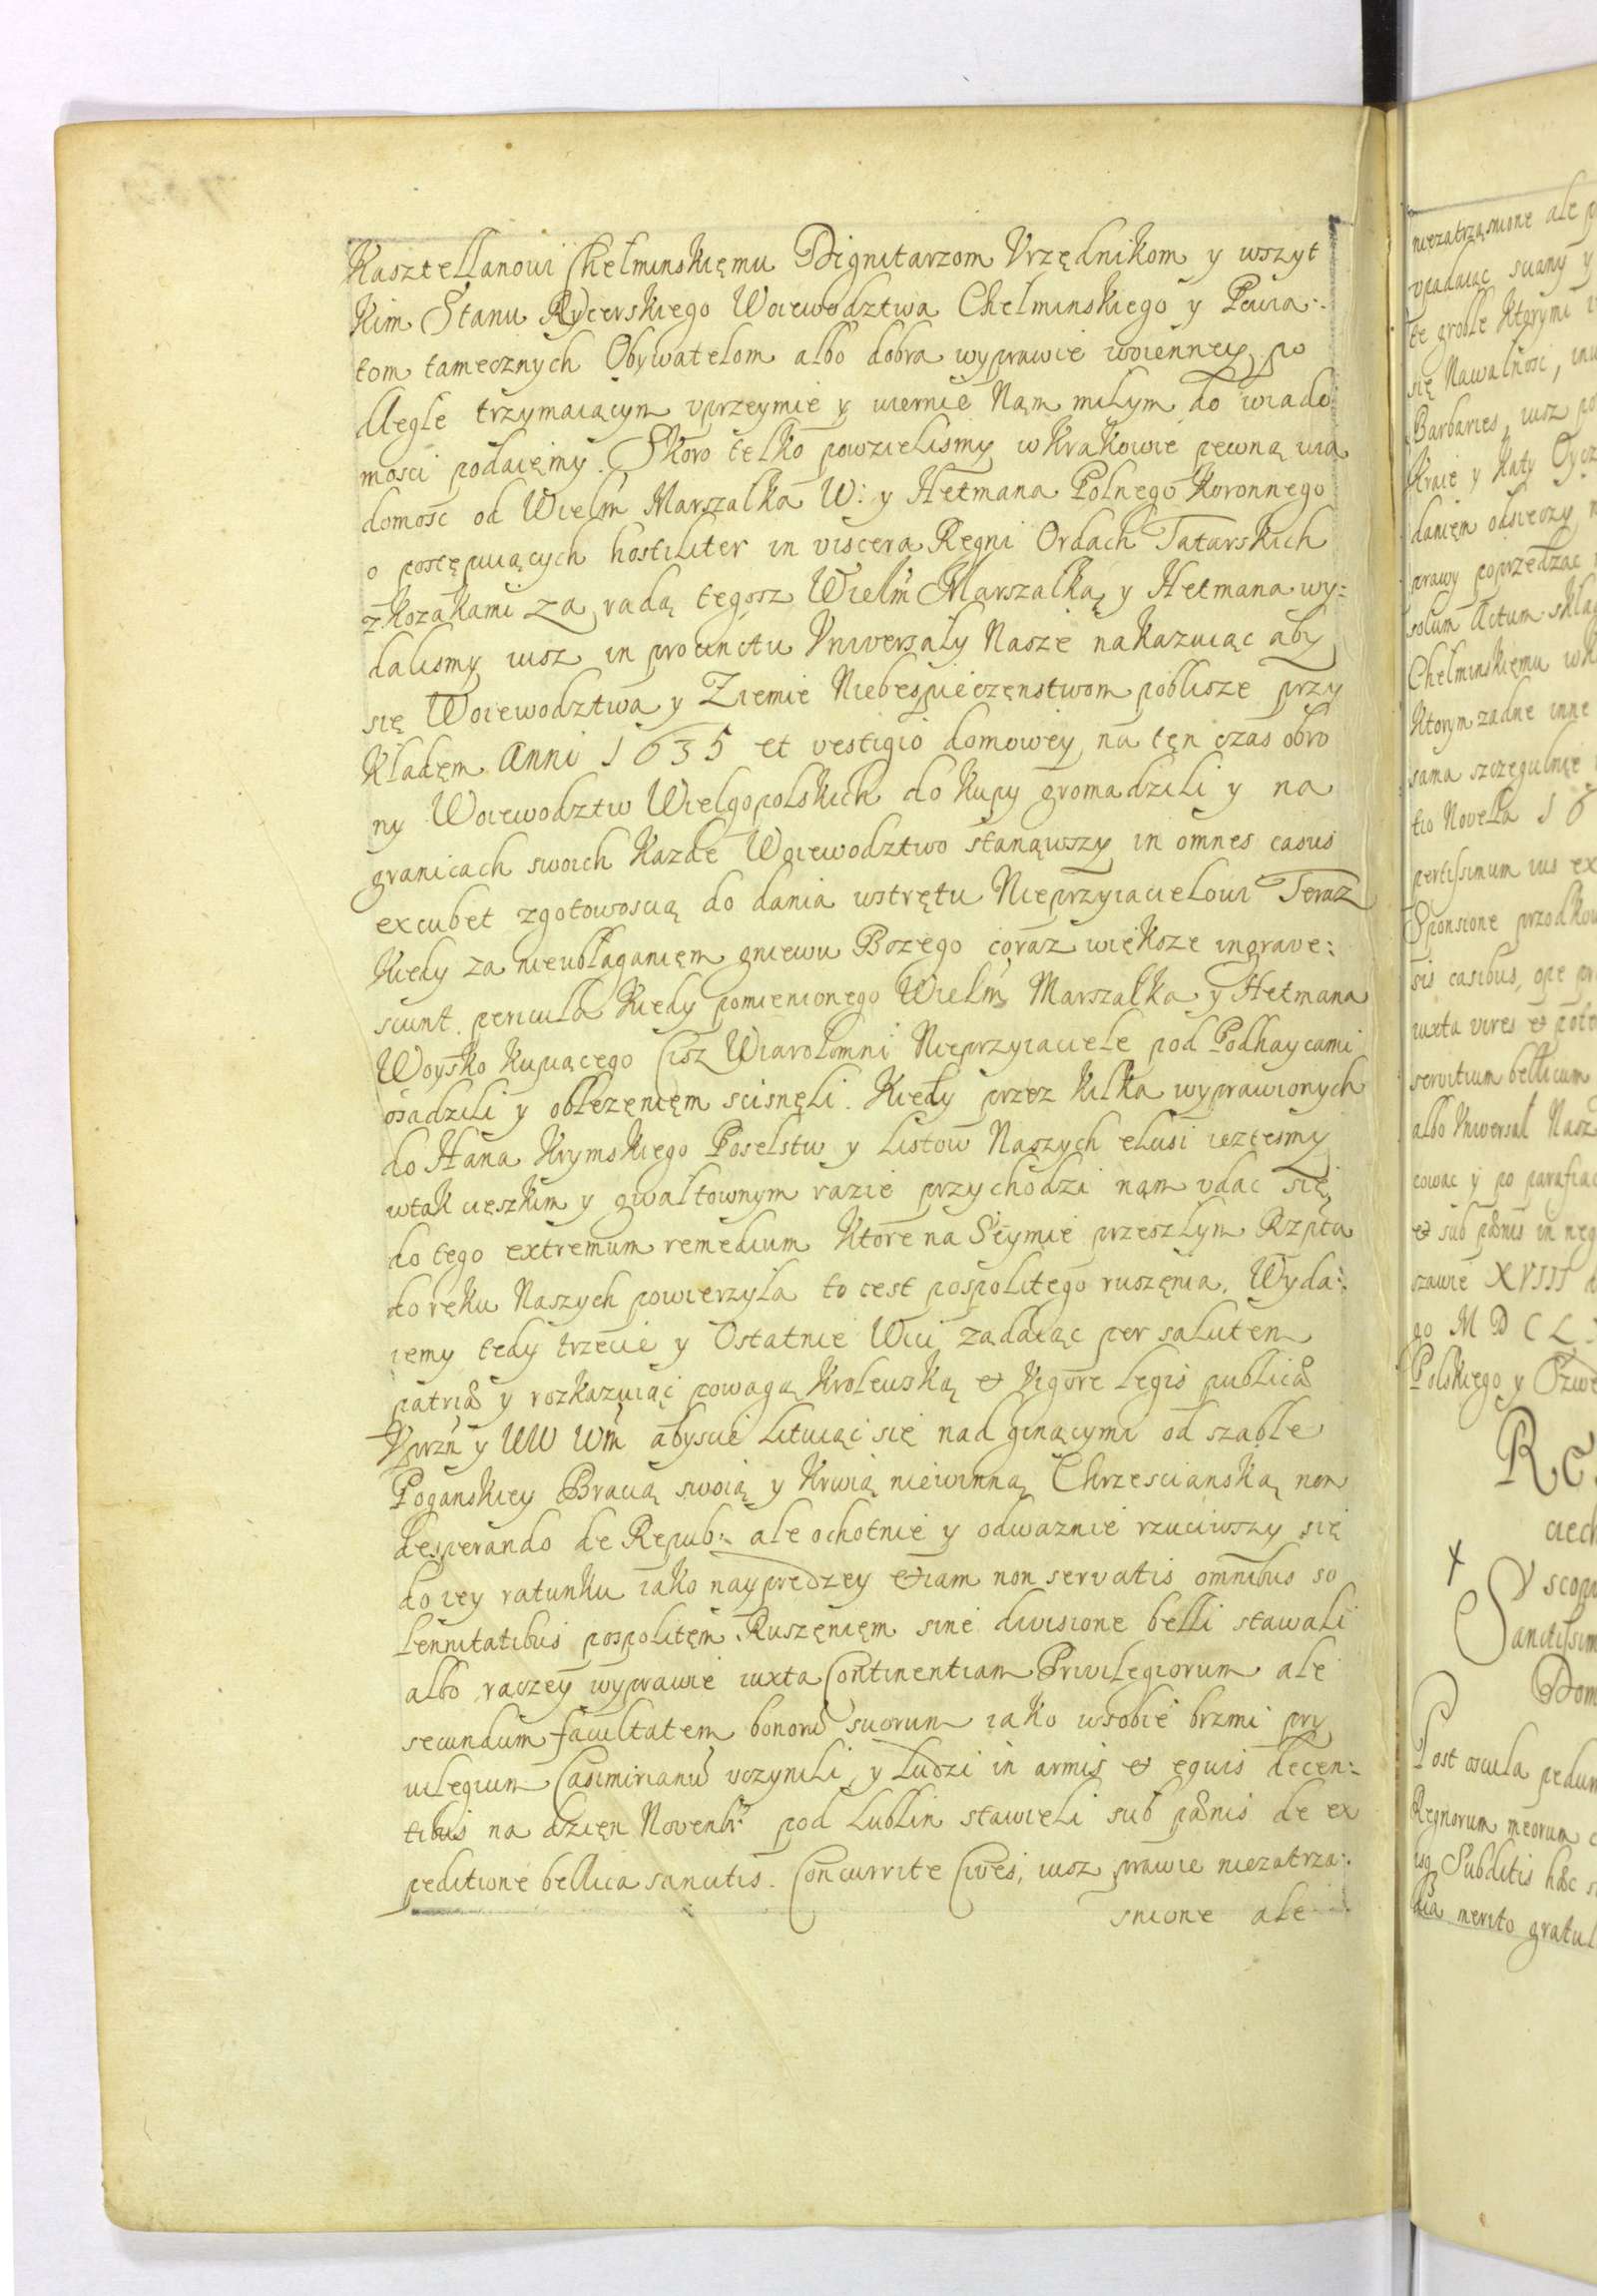 Kasztellanowi Chełminskięmu Dignitarzom Vrzędnikom y wszyt
kim Stanu Rycerskiego Woiewodztwa Chelminskiego y Powia:
tom tamecznych Obywatelom albo dobra wyprawie woienney po
dległe trzymaiącym vprzeymie y wiernie Nąm miłym do wiado
mosci podaięmy. Skoro telko powzielismy w Krakowie pewną wia
domosc od Wielm Marszałka W: y Hetmana Polnego Koronnego
o postępuiących hostiliter in viscera Regni Ordach Tatarskich
z kozakami za radą tegosz Wielm Marszałką y Hetmana wy:
dalismy iusz in procinctu Vniversały Nasze nakazuiąc aby
się Woiewodztwa y Ziemie Niebespieczęnstwom poblisze przy
kładęm Anni 1635 et vestigio domowey na tęn czas obro
ny Woiewodztw Wielgopolskich do kupy gromadzili y na
granicach swoich kazde Woiewodztwo stanąwszy in omnes casus
excubet zgotowoscią do dania wstrętu Nieprzyiacielowi Teraz
kiedy za nieubłaganięm gniewu Bozego coraz większe ingrave:
scunt pericula kiedy pomienionego Wielm Marszałka y Hetmana
Woysko kupiącego cisz Wiarołomni Nieprzyiaciele pod Podhaycami
osadzili y oblezęnięm scisnęli. Kiedy przez kilka wyprawionych
do Hana Krymskiego Poselstw y Listow Naszych elusi iestesmy
wtak cięszkim y gwałtownym razie przychodzi nąm vdac się
do tego extremum remedium ktore na Seymie przeszłym Rzpta
do ręku Naszych powierzyła to iest pospolitego ruszęnia. Wyda:
iemy tedy trzecie y Ostatnie Wici ządaiąc per salutem
patriæ y rozkazuiąc powagą Krolewską & vigore legis publicæ
Vprzn y UW Wm abyscie lituiąc się nad ginącymi od szable
Poganskiey Bracią swoią y Krwią niewinną Chrzescianską non
desperando de Repub: ale ochotnie y odwaznie rzuciwszy się
do iey ratunku iako nayprędzey etiam non servatis omnibus so
lennitatibus pospolitęm Ruszęnięm sine divisione belli stawali
albo raczey wyprawie iuxta Continentiam Privilegiorum ale
secundum facultatem bonorũ suorum iako wsobie brzmi pry
vilegium Casimirianũ vczynili y ludzi in armis & equis decen:
tibus na dzięn Novembr pod Lublin stawieli sub pænis de ex
peditione bellica sancitis. Concurrite Cives, iusz prawie niezatrzą:
snione ale
niezatrząsnione ale
vpadaiąc sciany y
te groble ktorymi
się Nawalnosc,
Barbaries, iusz
Kraie y Katy
danięm odsieczy
prawy poprzedzac
solum Actum
Chelminskięmu
ktorym zadne inne
sama szczegulnie
tio Novella 16
pertissimum ius ex
Sponsione przodkow
sis casibus, ope
iuxta vires &
servitium bellicum
albo Vniversal Nasz
cowac y po
& sub pænis in
szawie XVIII
go M D C L
Polskiego y
Re
ciech
V
Sanctissim
Dom
Post oscula pedum
Regnorum meorum
Subditis hæc
merito gratul